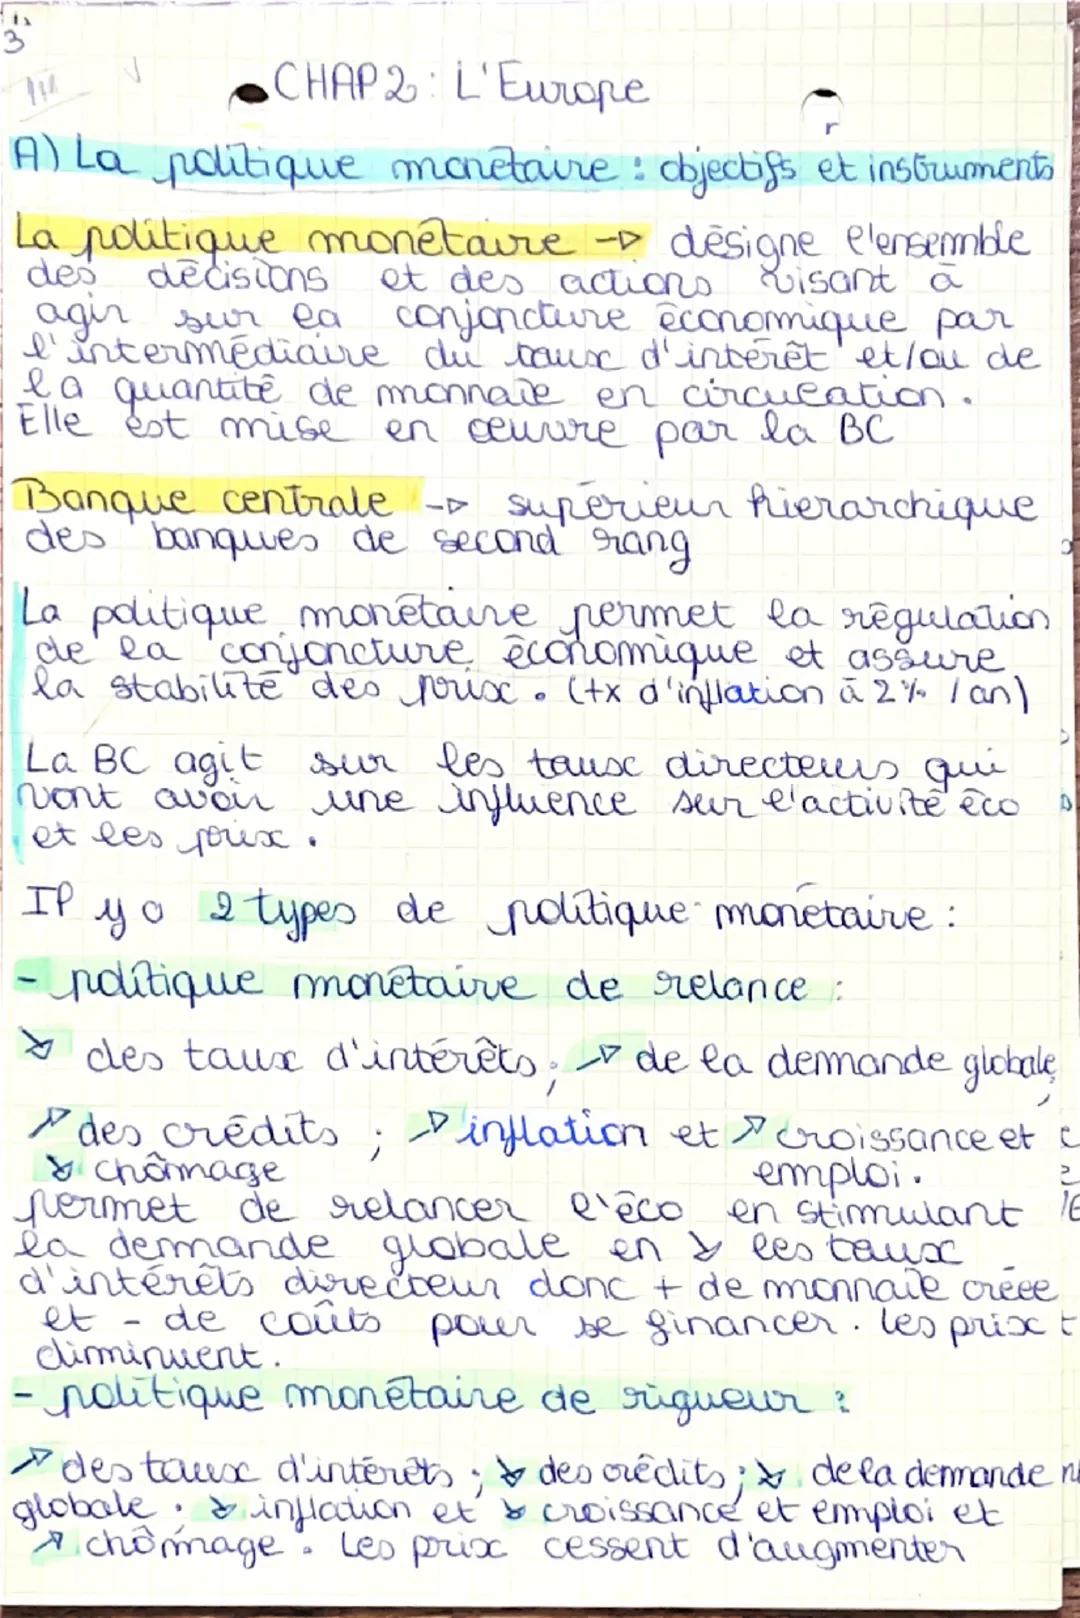 CHAP 2 : L'Europe
A) La politique monétaire : objectifs et instruments
La politique monétaire -> désigne l'ensemble
des décisions et des actions visant à
agir sur la conjoncture économique par
l'intermédiaire du taux d'intérêt et/ou de
la quantité de monnaie en circulation.
Elle est mise en œuvre par la BC
Banque centrale -> supérieur hierarchique
des banques de second rang
La politique monétaire permet la régulation
de la conjoncture économique et assure
la stabilité des prix. (tx d'inflation à 2% /an)
La BC agit sur les taux directeurs qui
vont avoir une influence sur l'activité éco
et les prix.
Il y a 2 types de politique monétaire :
- politique monétaire de relance :
↘ des taux d'intérêts ; ↗ de la demande globale ;
↗ des crédits ; ↗ inflation et ↗ croissance et
↘ chômage emploi.
permet de relancer l'éco en stimulant
la demande globale en ↘ les taux
d'intérêts directeur donc + de monnaie créée
et - de coûts pour se financer. les prix
diminuent.
- politique monétaire de rigueur :
↗ des taux d'intérêts ; ↘ des crédits ; ↘ de la demande
globale. ↘ inflation et ↘ croissance et emploi et
↗ chômage. Les prix cessent d'augmenter